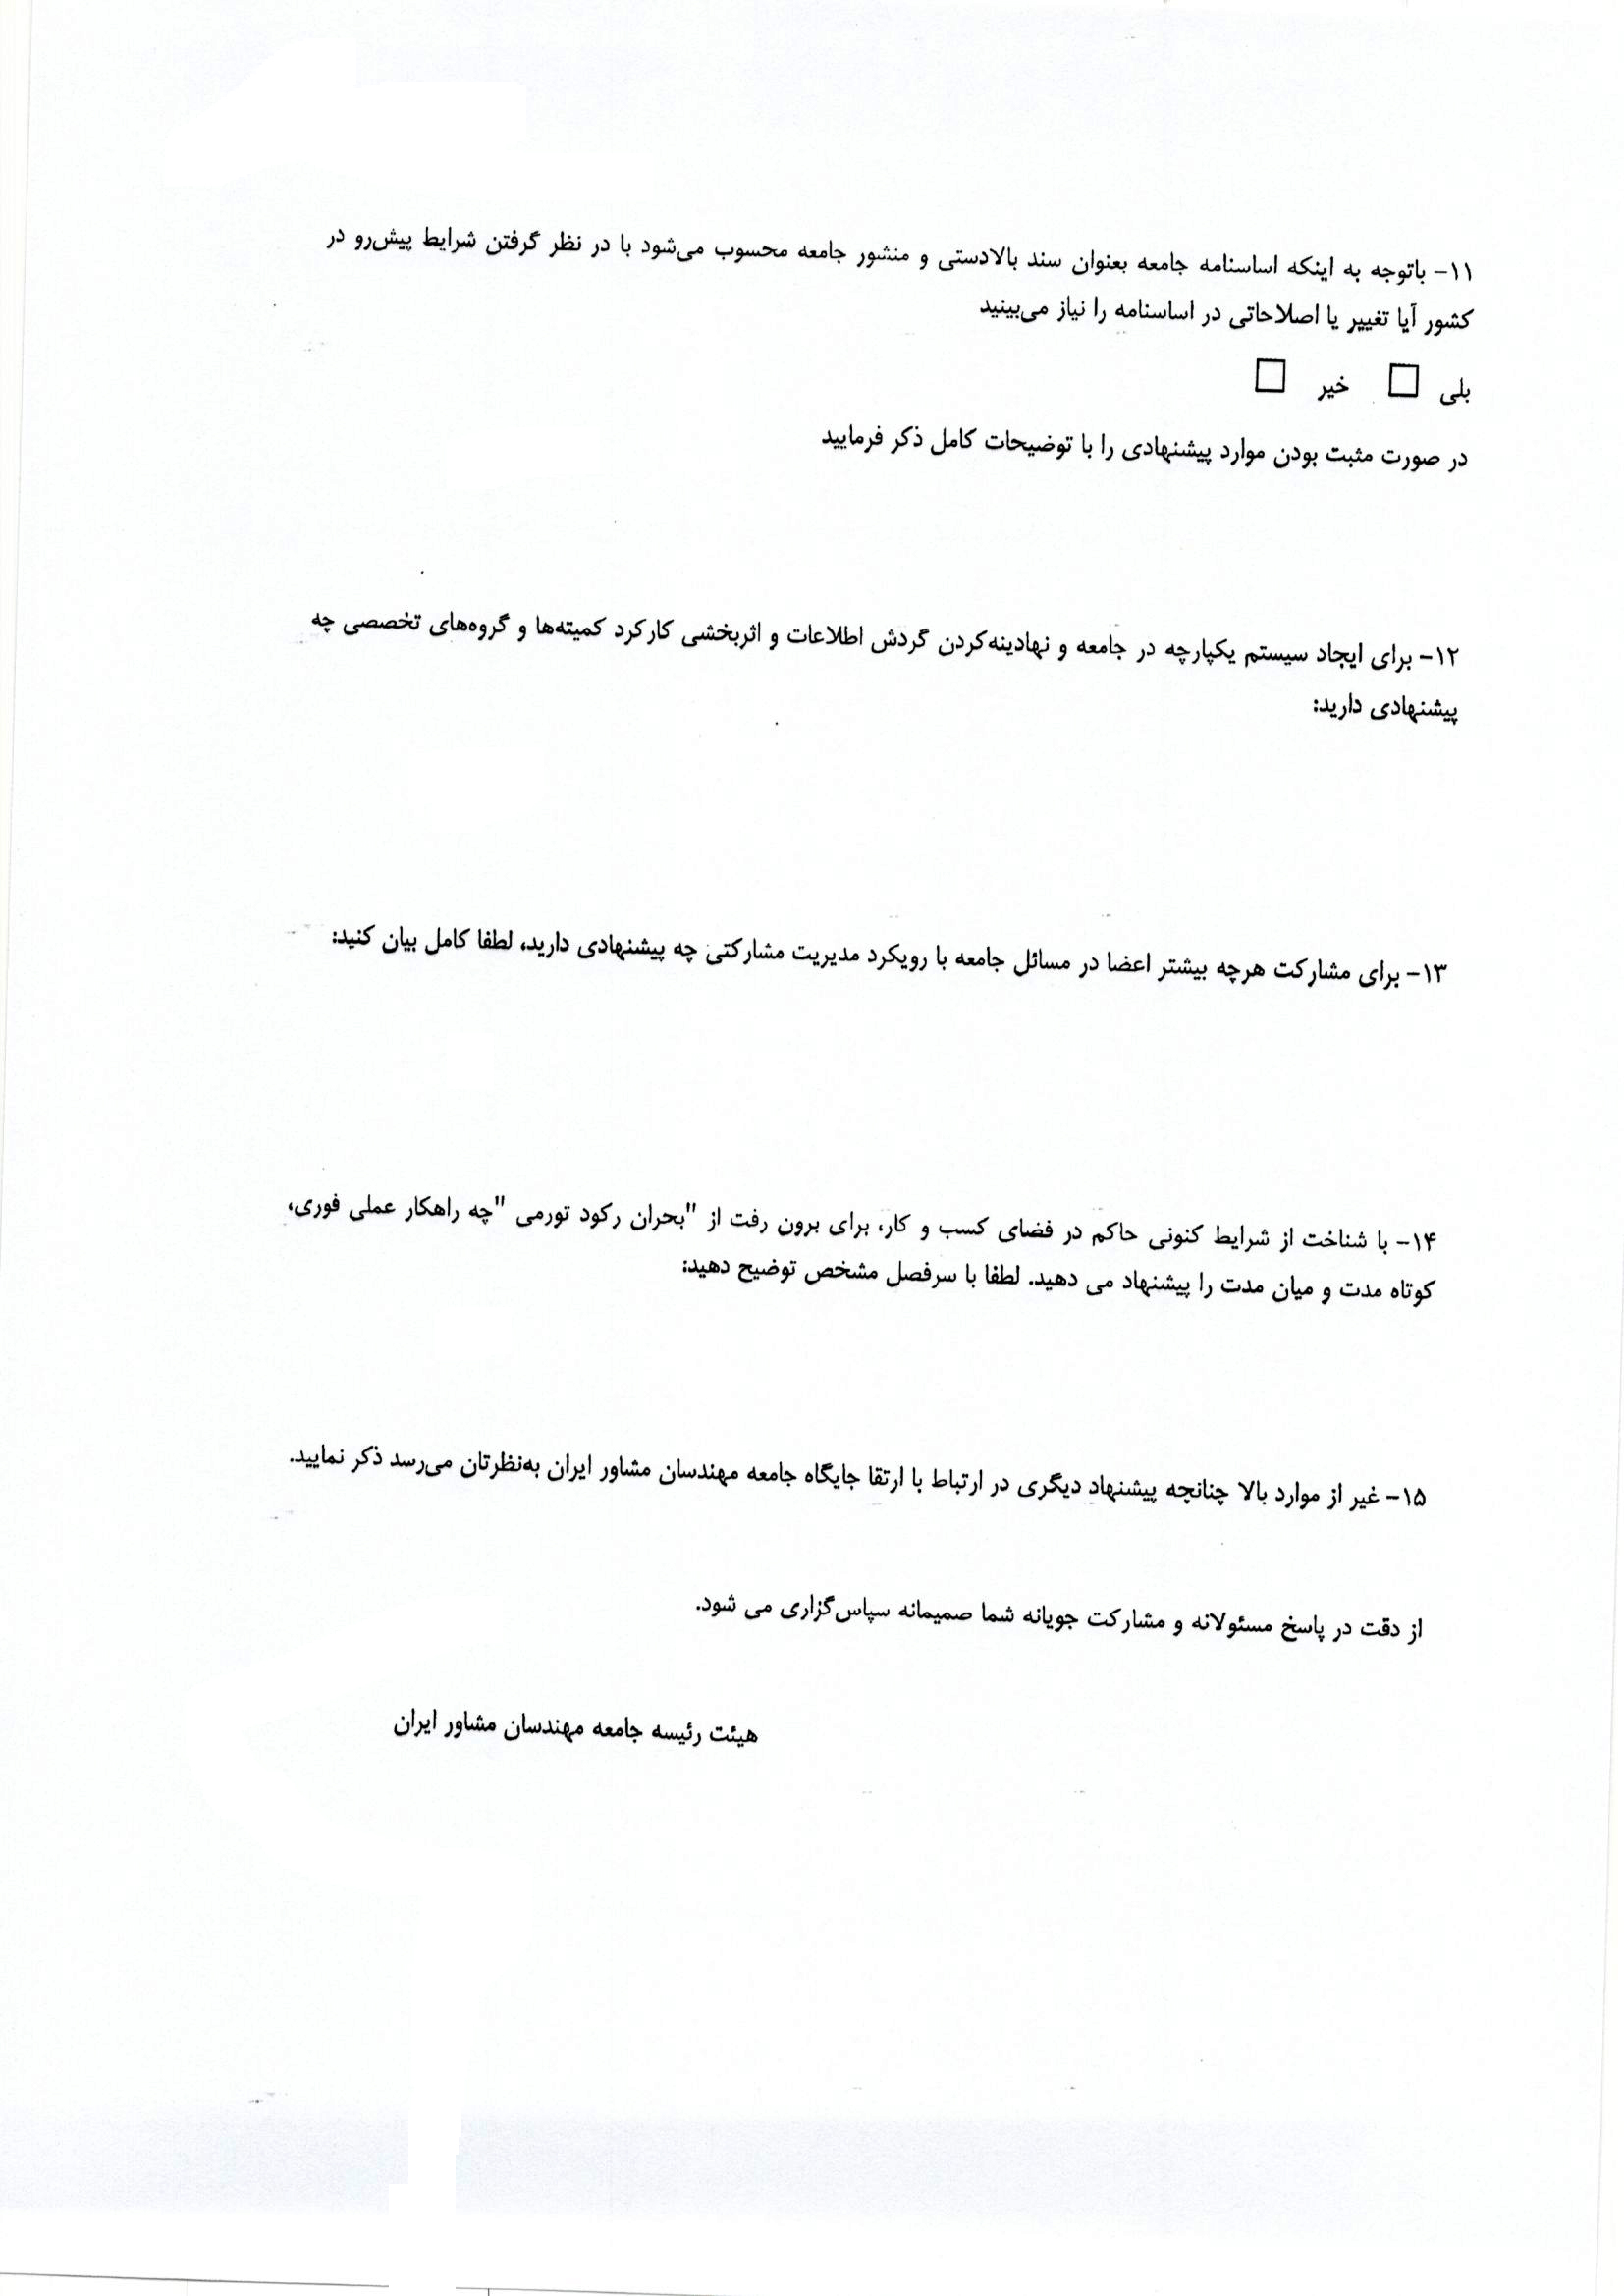 ۱۱- باتوجه به اینکه اساسنامه جامعه بعنوان سند بالادستی و منشور جامعه محسوب می‌شود با در نظر گرفتن شرایط پیش‌رو در
کشور آیا تغییر یا اصلاحاتی در اساسنامه را نیاز می‌بینید
بلی □ خیر □
در صورت مثبت بودن موارد پیشنهادی را با توضیحات کامل ذکر فرمایید
۱۲- برای ایجاد سیستم یکپارچه در جامعه و نهادینه‌کردن گردش اطلاعات و اثربخشی کارکرد کمیته‌ها و گروه‌های تخصصی چه
پیشنهادی دارید:
۱۳- برای مشارکت هرچه بیشتر اعضا در مسائل جامعه با رویکرد مدیریت مشارکتی چه پیشنهادی دارید، لطفا کامل بیان کنید:
۱۴- با شناخت از شرایط کنونی حاکم در فضای کسب و کار، برای برون رفت از "بحران رکود تورمی "چه راهکار عملی فوری،
کوتاه مدت و میان مدت را پیشنهاد می دهید. لطفا با سرفصل مشخص توضیح دهید:
۱۵- غیر از موارد بالا چنانچه پیشنهاد دیگری در ارتباط با ارتقا جایگاه جامعه مهندسان مشاور ایران به‌نظرتان می‌رسد ذکر نمایید.
از دقت در پاسخ مسئولانه و مشارکت جویانه شما صمیمانه سپاس‌گزاری می شود.
هیئت رئیسه جامعه مهندسان مشاور ایران